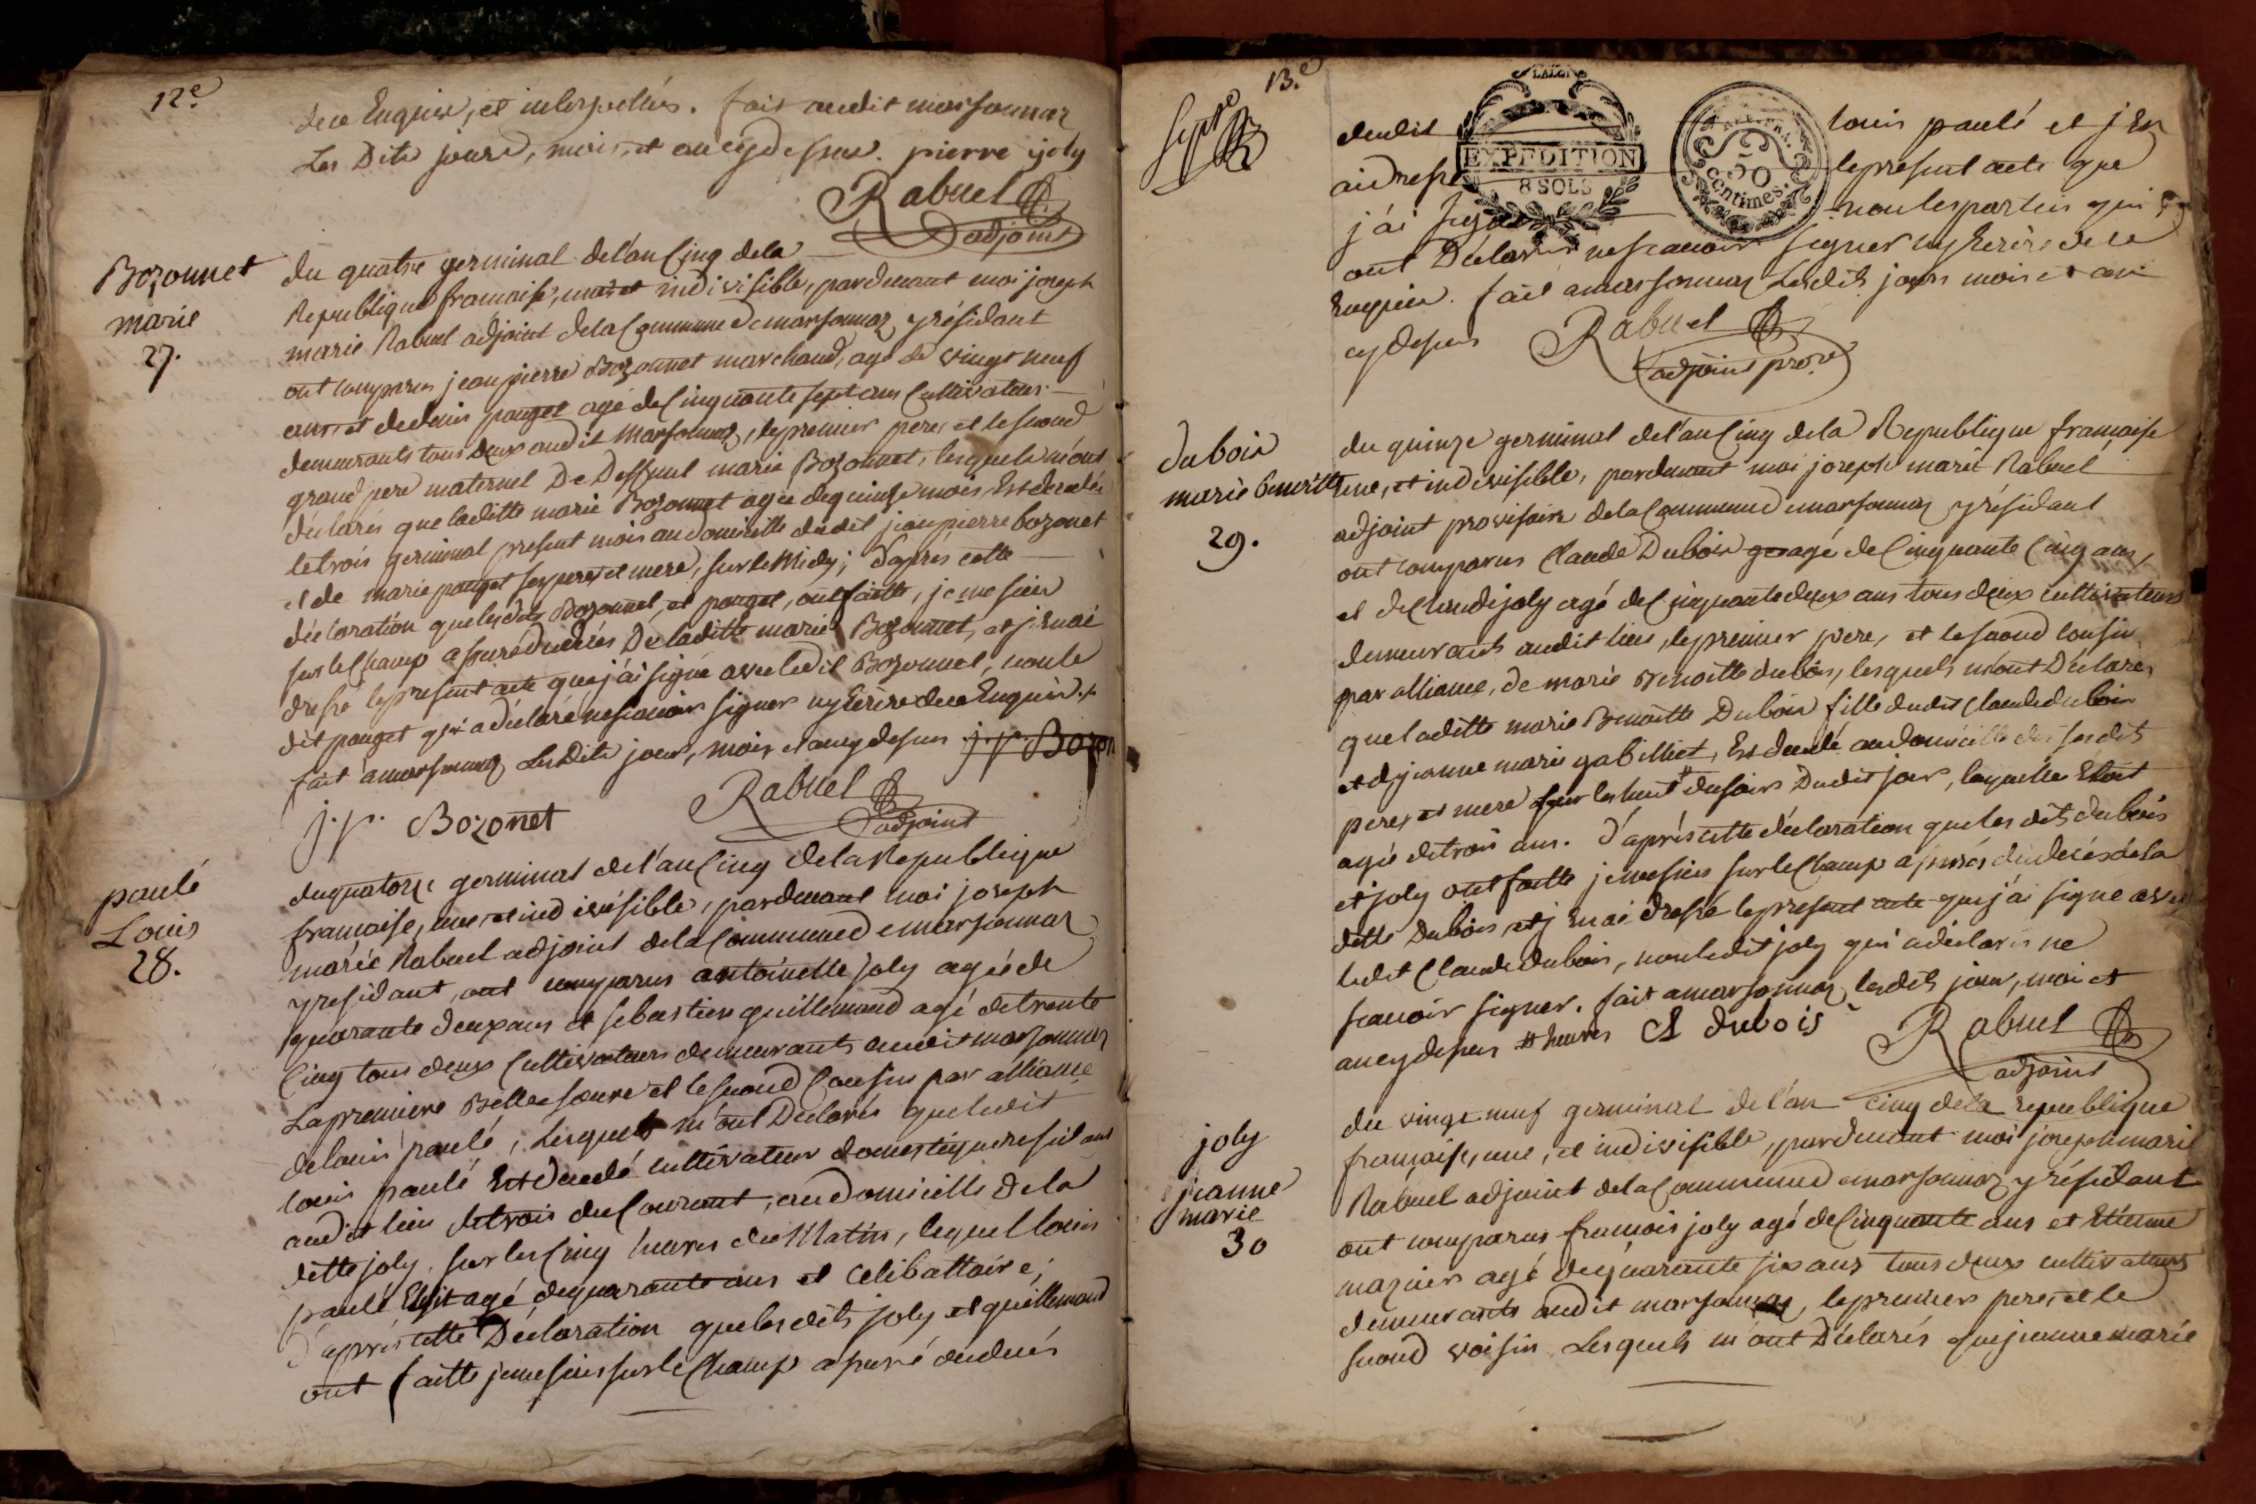 12e
de ce Enquis, et interpellés. fait audit marsonnaz
Les Dits jours, mois, et an cy dessus. pierre joly
Rabuel
adjoint
Bozonnet
marie
27.
du quatre germinal de l'an Cinq de la
Republique francoise, une et indivisible, pardevant moi joseph
marie Rabuel adjoint de la Commune de marsonnaz y résidant
ont comparus jean pierre Bozonnet marchand, agé de vingt neuf
ans, et de denis pauget agé de Cinquante sept ans Cultivateur
demeurants tous deux audit Marsonnaz, le premier pere, et le second
grand pere maternel De Deffunt marie Bozonnet, lesquels m'ont
déclarés que laditte marie Bozonnet agée de quinze mois Est decedée
le trois germinal present mois au domicille dudit jean pierre bozonet
et de marie pauget ses pere, et mere, sur le Midy; d'après cette
déclaration que lesdits Bozonnet, et pauget, ont faitte, je me suis
sur le Champ assuré du decés De laditte marie Bozonnet, et j'En ai
dressé le present acte que j'ai signé avec ledit Bozonnet, non le
dit pauget qui a déclaré ne scavoir signer ny Ecrire de ce Enquis.
fait a marsonnaz Les Dits jour, mois, et an cy dessus j. p. Bozon
j. p. Bozonet
Rabuel
adjoint
paulé
Louis
28.
du quatorze germinal de l'an Cinq de la Republique
francoise, une, et indivisible, pardevant moi joseph
marie Rabuel adjoint de la Commune de marsonnaz
y residant, ont comparus antoinette joly agée de
quarante deux ans et sebastien guillemaud agé de trente
Cinq tous deux Cultivateurs demeurants audit marsonnaz
La premiere Belle soeure et le second Cousin par alliance
de louis paulé, Lesquels m'ont Déclarés que ledit
louis paulé Est decedé cultivateur domestique residant
audit lieu de trois du Courant, au domicille de la
ditte joly, sur les Cinq heures du Matin, lequel louis
paulé Etoit agé de quarante ans et Célibattaire;
d'après cette Déclaration que lesdits joly et guillemaud
ont faitte je me suis sur le Champ assuré du decés
13.e
dudit
louis paulé et j'En
ai dressé
le present acte que
j'ai signé
non les parties qui
EXPEDITION
8 SOLS
50
centimes.
ont Déclarés ne scavoir signer ny Ecrire de ce
Enquis. fait a marsonnaz Lesdits jours mois et an
cy dessus
Rabuel
adjoint pro.re
dubois
marie benoitte
29.
du quinze germinal de l'an Cinq de la Republique francoise
une, et indivisible, pardevant moi joseph marie Rabuel
adjoint provisoire de la Commune de marsonnaz y résidant
ont comparus Claude Dubois agé de Cinquante Cinq ans,
et de Claude joly agé de Cinquante deux ans tous deux cultivateurs
demeurants audit lieu, le premier pere, et le second cousin
par alliance, de marie Benoitte dubois, lesquels m'ont Déclarés
que laditte marie Benoitte Dubois fille dudit Claude dubois
et de jeanne marie gabilliet, Est decedé au domicille de ses dits
pere, et mere sur les huit # du soir Dudit jour, laquelle Etoit
agée de trois ans. D'après cette déclaration que les dits dubois
et joly ont faitte je me suis sur le Champ assurés du decés de la
ditte Dubois, et j'En ai dressé le present acte que j'ai signé avec
ledit Claude dubois, non ledit joly qui a déclaré ne
scavoir signer. fait a marsonnaz lesdits jour, moi et
an cy dessus # heures Cl dubois
Rabuel
adjoint
joly
jeanne
marie
30
du vingt neuf germinal de l'an cinq de la republique
francoise, une, et indivisible, pardevant moi joseph marie
Rabuel adjoint de la Commune de marsonnaz y résidant
ont comparus francois joly agé de Cinquante ans et Etienne
mazuier agé de quarante six ans tous deux cultivateurs
demeurants audit marsonnaz, le premier pere, et le
second voisin Lesquels m'ont Déclarés que jeanne marie